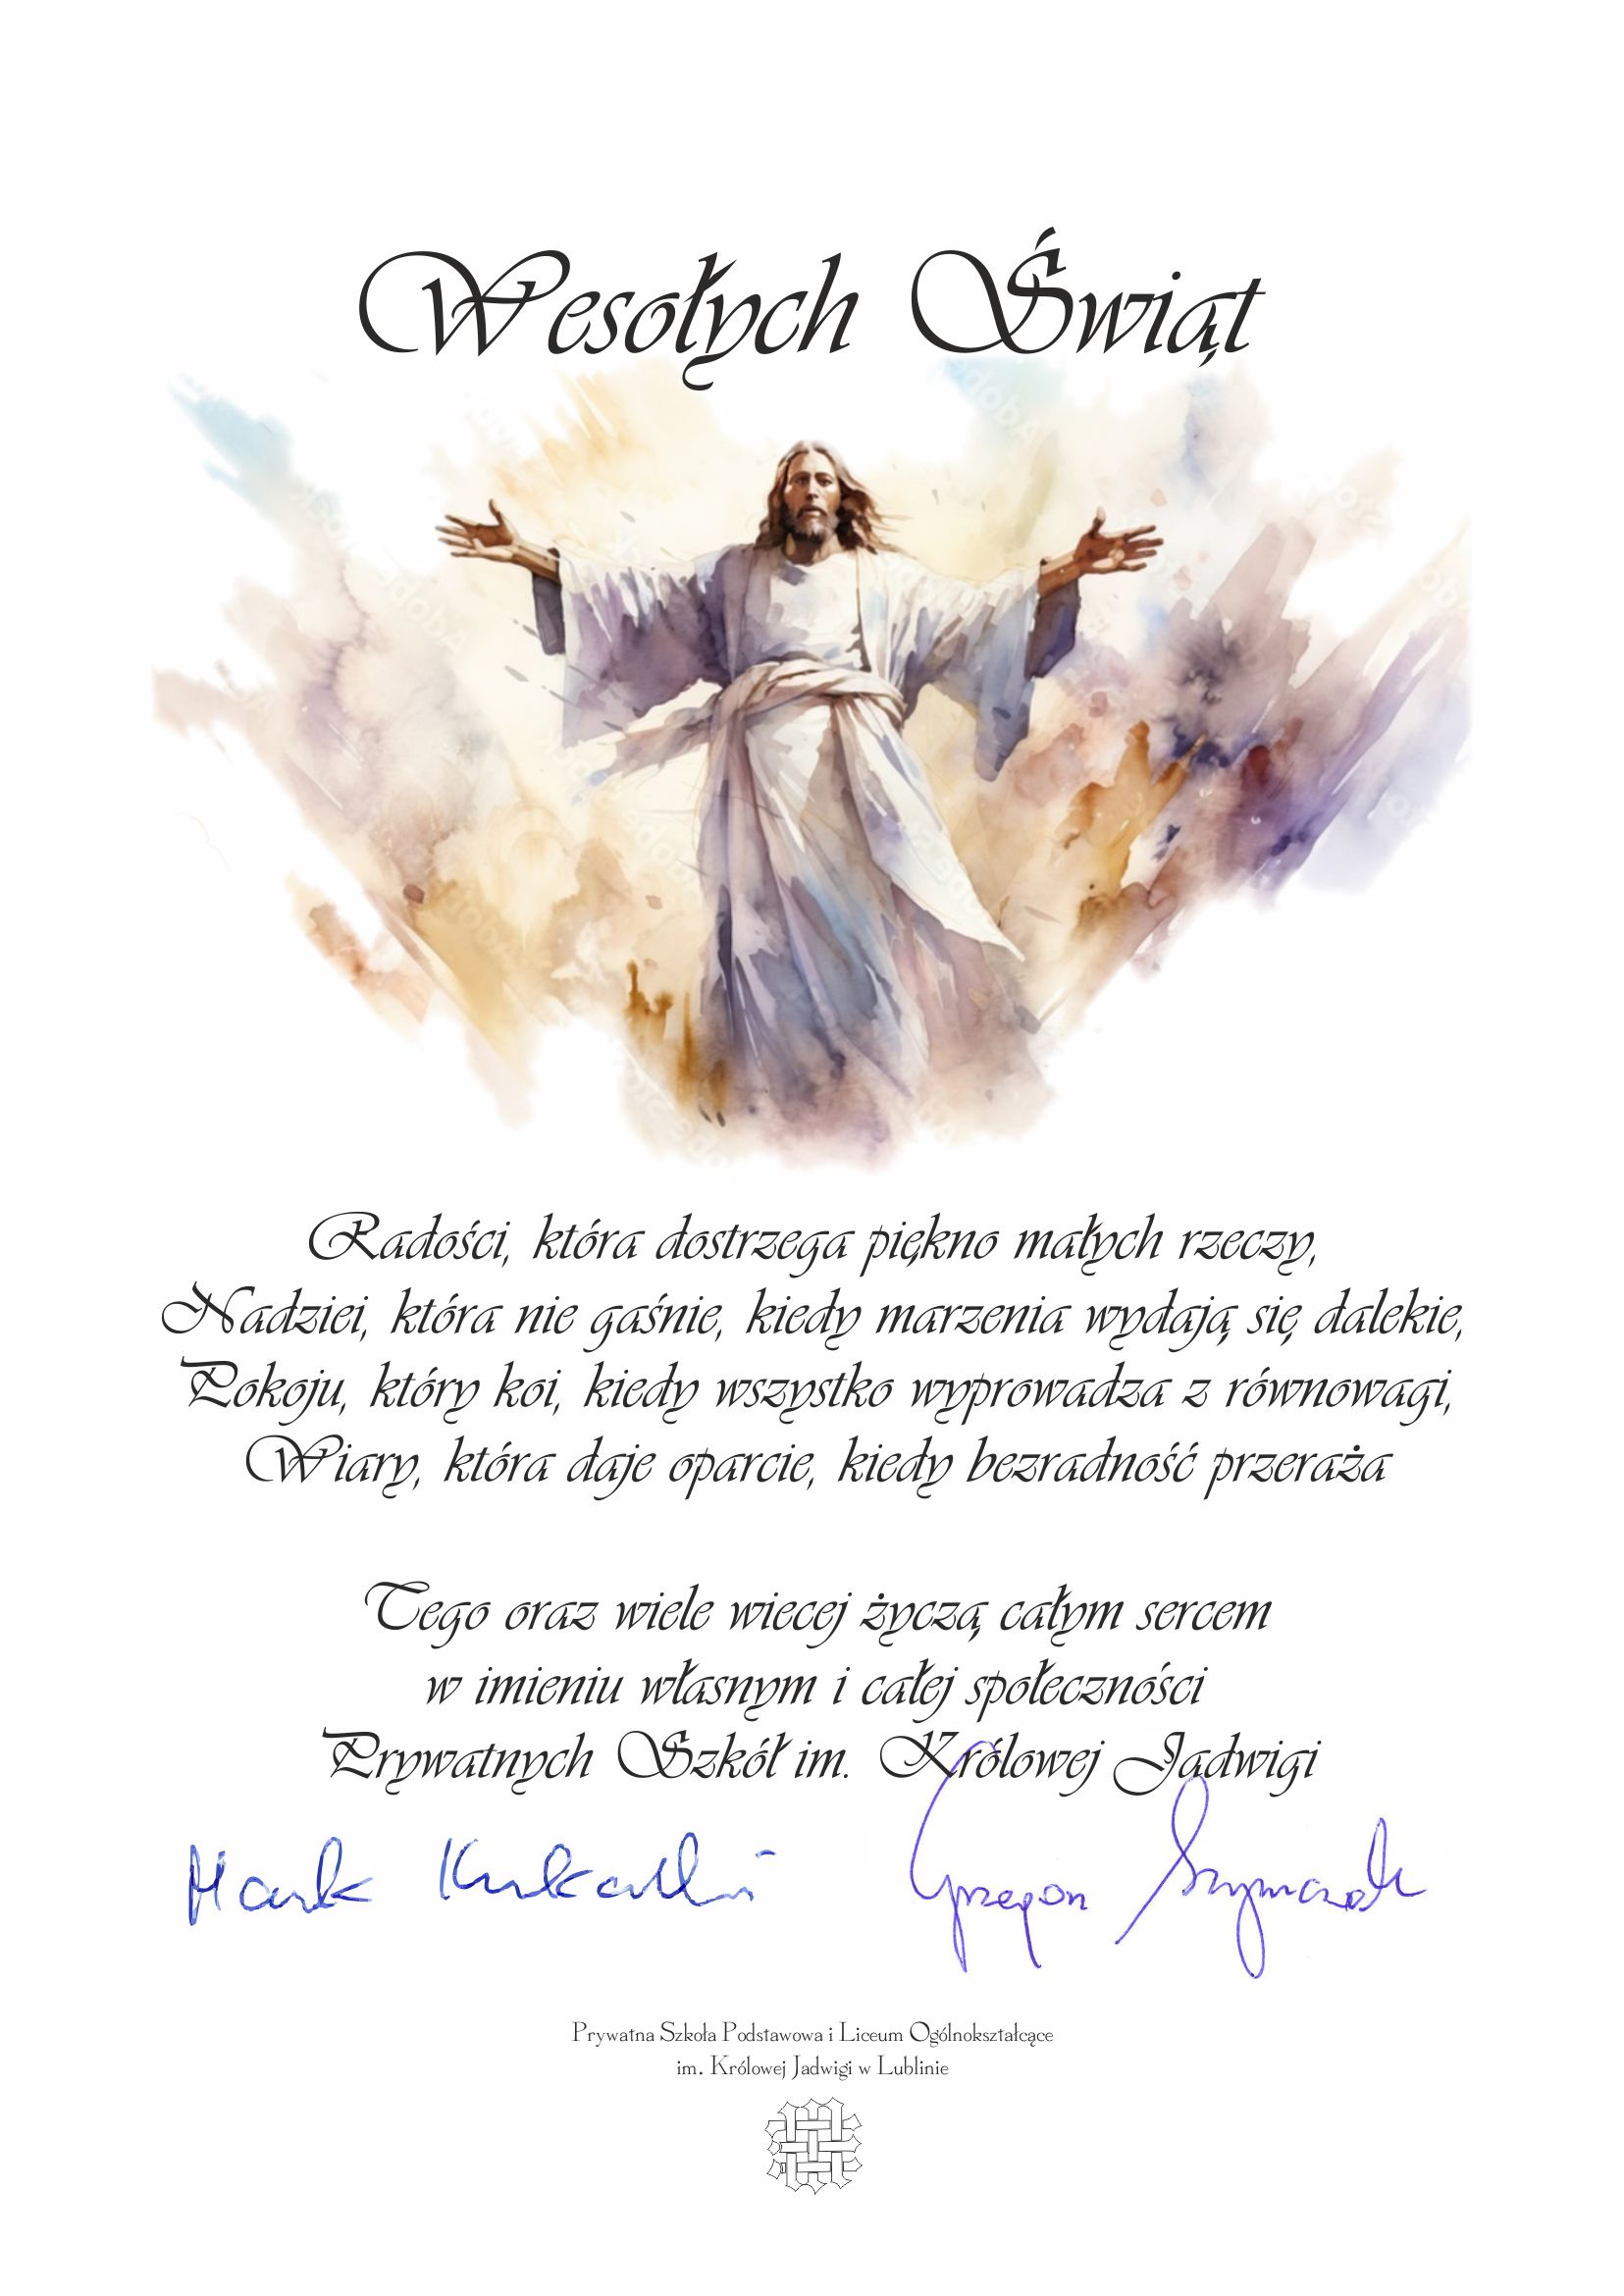 Wesołych Świąt
Radości, która dostrzega piękno małych rzeczy,
Nadziei, która nie gaśnie, kiedy marzenia wydają się dalekie,
Pokoju, który koi, kiedy wszystko wyprowadza z równowagi,
Wiary, która daje oparcie, kiedy bezradność przeraża
Tego oraz wiele wiecej życzą całym sercem
w imieniu własnym i całej społeczności
Prywatnych Szkół im. Królowej Jadwigi
Grzegorz Szymczak
Prywatna Szkoła Podstawowa i Liceum Ogólnokształcące
im. Królowej Jadwigi w Lublinie